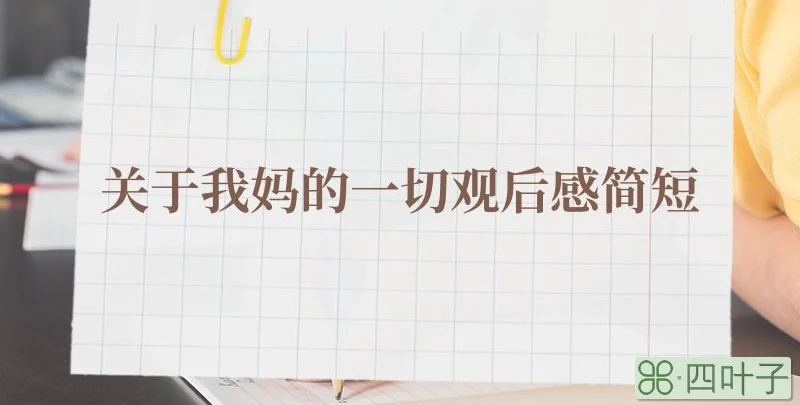 关于我妈的一切观后感简短
四叶子